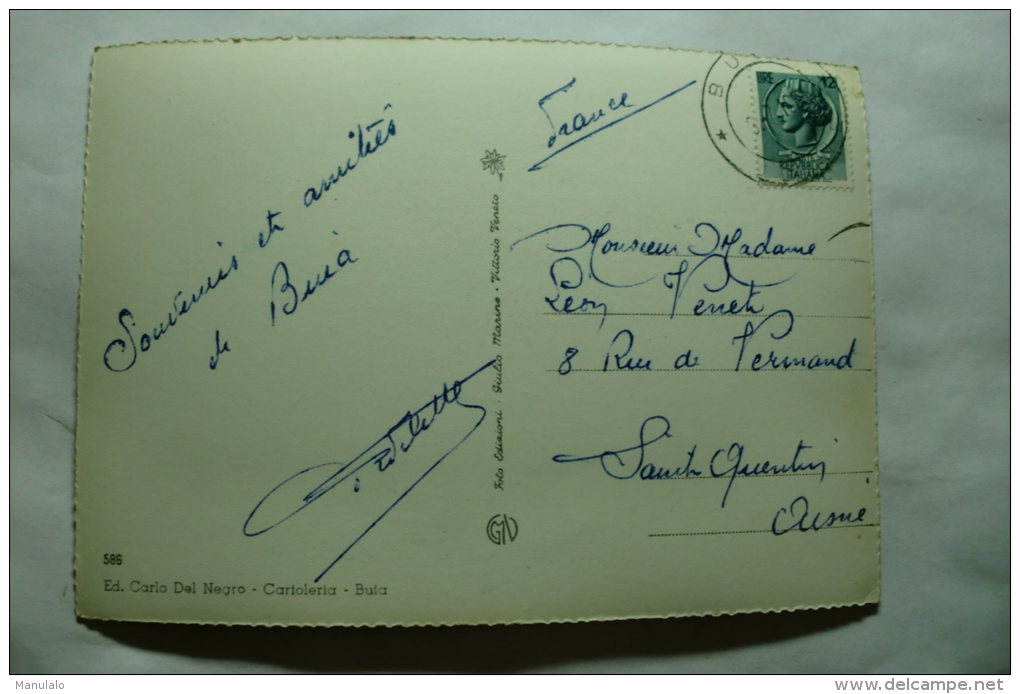 Souvenis et amitiés
de Buia
586
Ed. Carlo Del Negro - Cartoleria - Buia
Foto Edizioni - Giulio Marino - Vittorio Veneto
GMV
France
BU
LIRE 12
REPUBBLICA
ITALIANA
Monsieur Madame
Léon Venet
8 Rue de Vermand
Saint Quentin
Aisne
Manulalo
www.delcampe.net